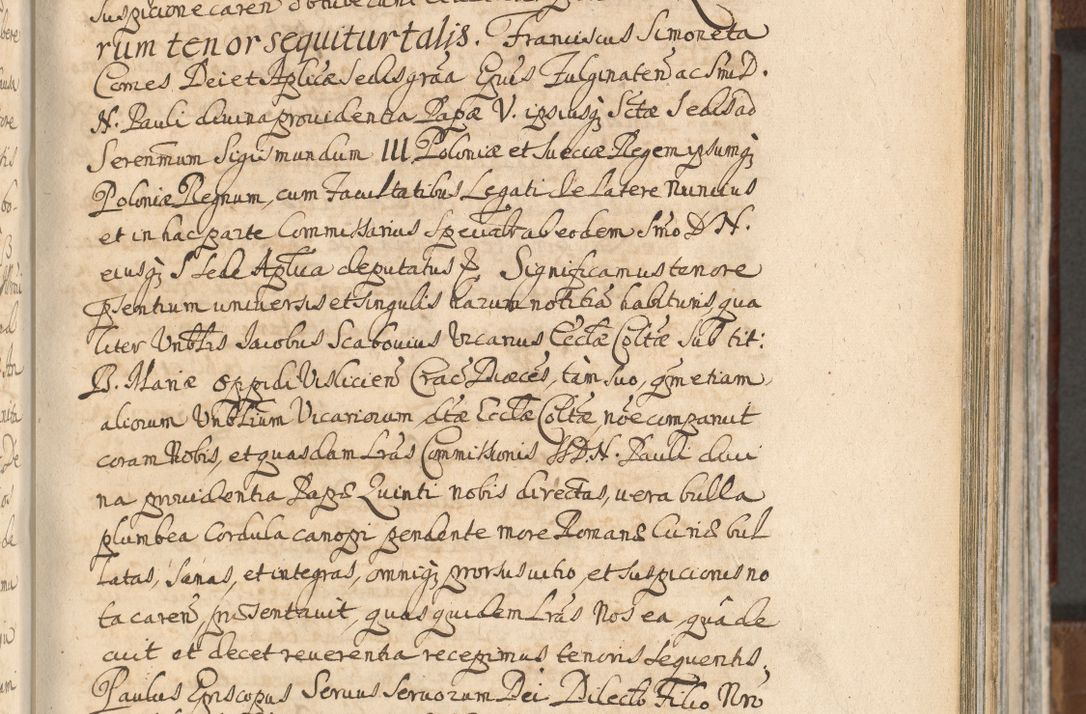 rum tenor sequitur talis. Franciscus Simoneta
Comes Dei et Aplicæ Sedis grãa Epũs Fulginateñ ac Smi D.
N. Pauli divina providentia Papæ V. ipsiusq; Sctæ Sedis ad
Serenmum Sigismundum III Poloniæ et Sueciæ Regem ipsumq;
Poloniæ Regnum, cum Facultatibus Legati de latere Nuncius
et in hac parte Commissarius Specialr ab eodem Smo D. N.
eiusq; S. Sede Aplica deputatus &. Significamus tenore
psentium universis et singulis harum notitiã habituris, qua
liter Vnblis Jacobus Scabovius Vicarius Ecclæ Coltæ Sub tit:
B. Mariæ oppidi Visliciensẽ Crac Diæces, tàm suo, qm etiam
aliorum Vnblium Vicariorum, dtæ Ecclæ Coltæ nõe comparuit
coram Nobis, et quasdam Lrãs Commissionis SSD.N. Pauli divi
na providentia Papæ Quinti nobis directas, vera bulla
plumbea Cordula canopi pendente more Romanæ Curiæ bul
latas, sanas, et integras, omniq; prorsus vitio, et suspicionis no
ta careñ, præsentavit, quas quidem Lrãs Nos ea, quâ de
cuit et decet reverentia recepimus tenoris sequentis.
Paulus Episcopus Servus Servorum Dei Dilecto Filio Nrõ